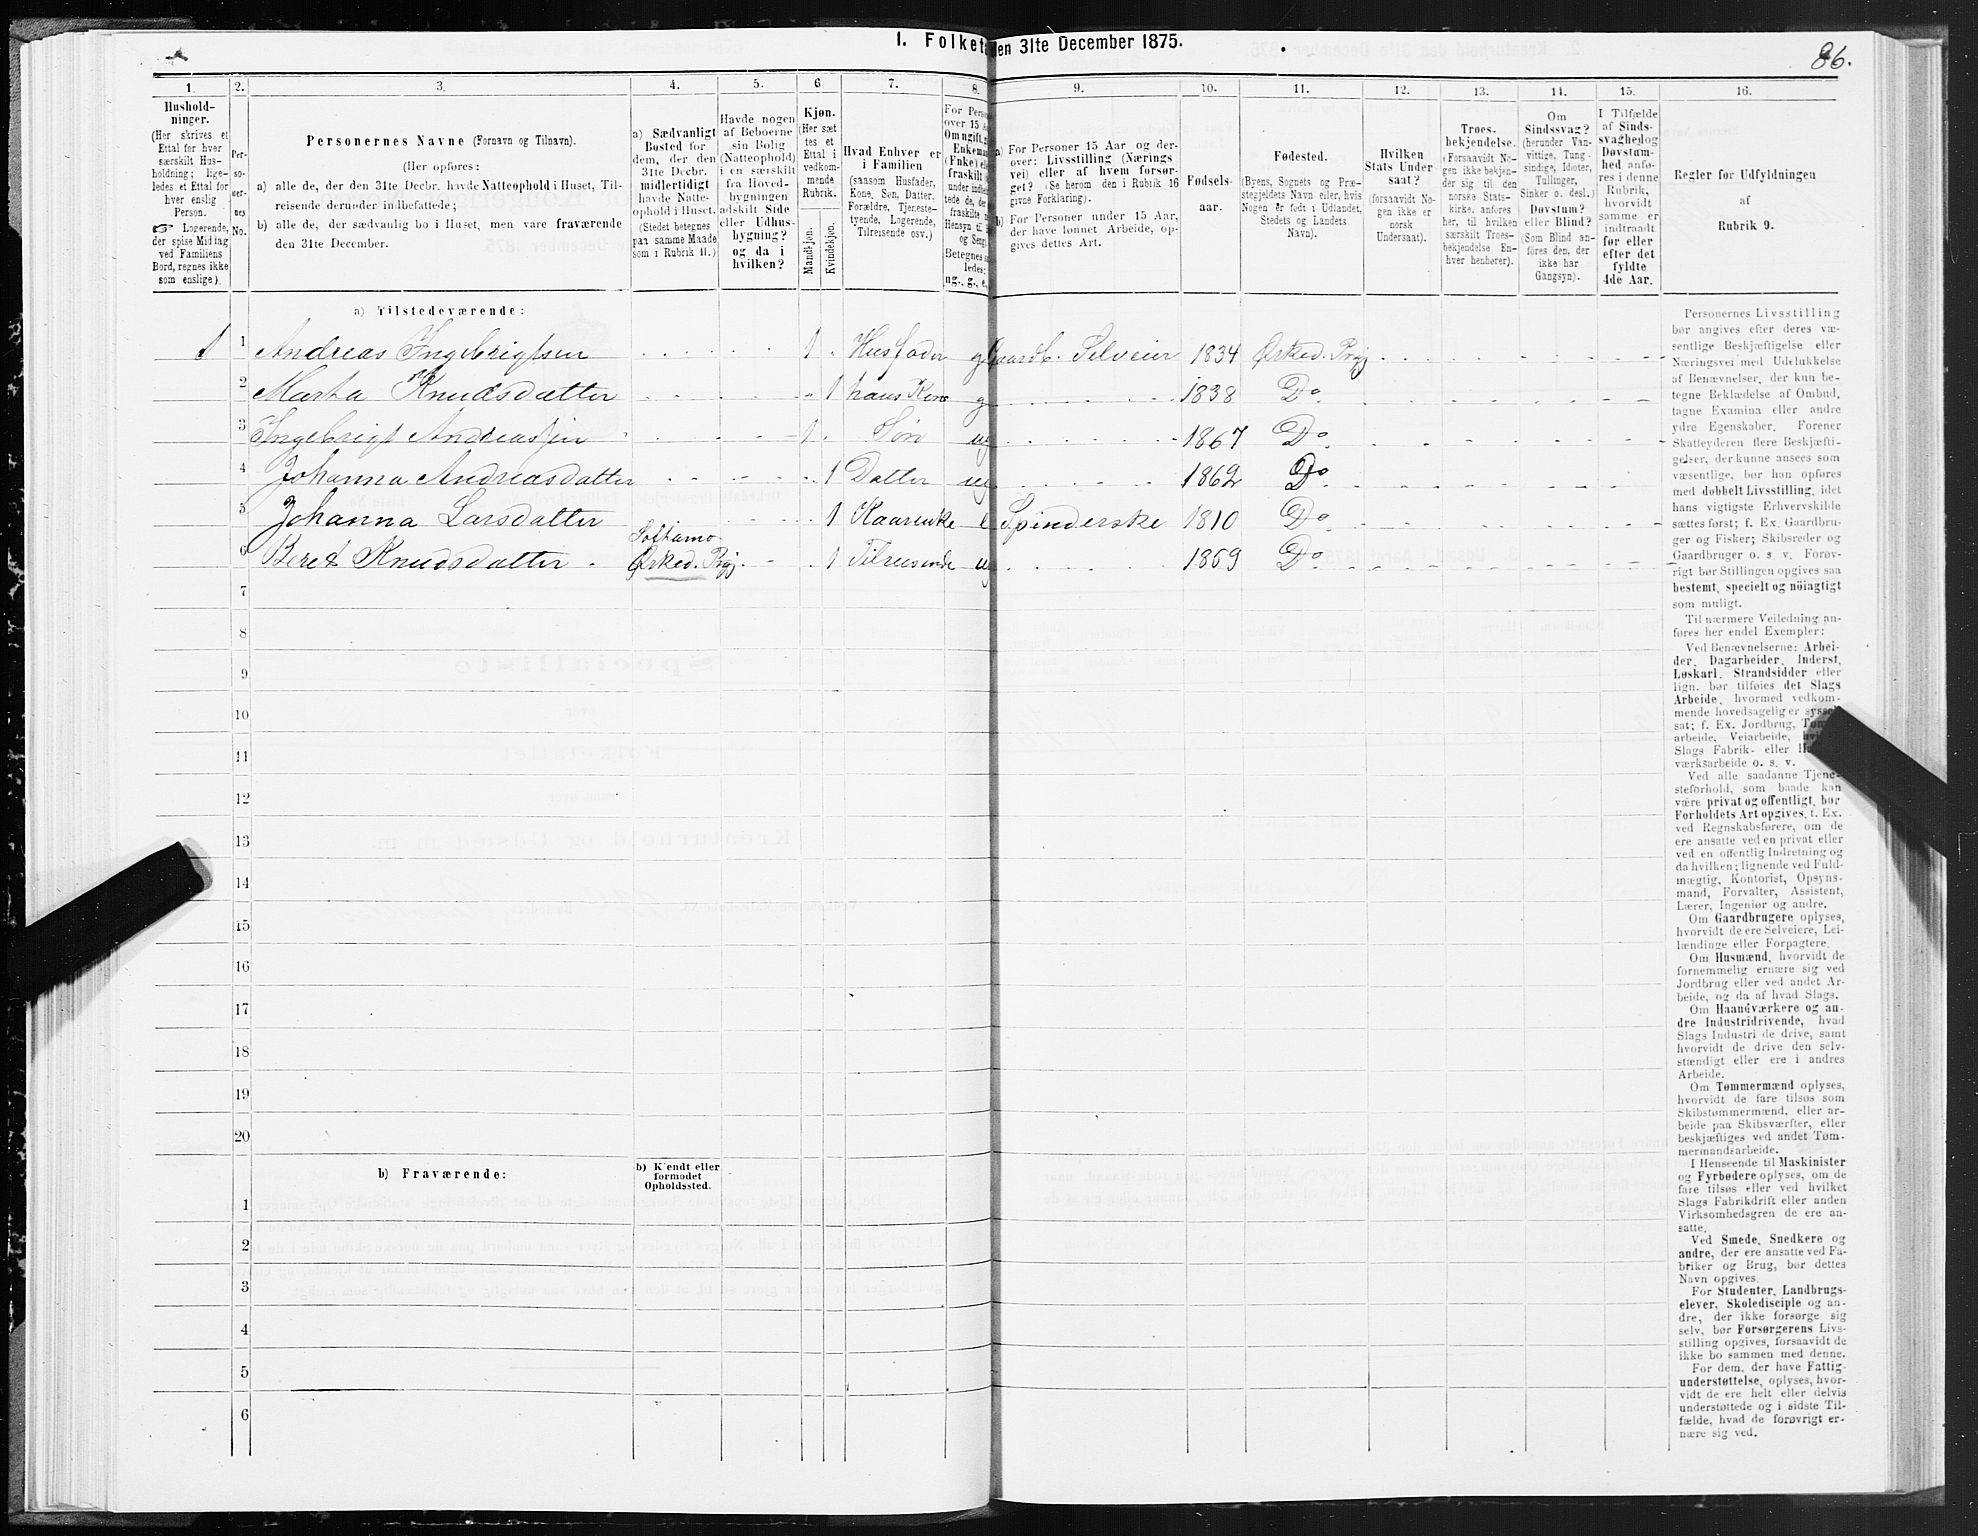 I. Folket
den 31te December 1875.
86.
1.
2.
3.
4.
5.
6
7.
8.
9.
10.
11.
12.
13.
14.
15.
16.
Hushold-
ninger.
(Her skrives et
Ettal for hver
særskilt Hus-
holdning; lige-
ledes et Ettal for
hver enslig
Person.
Logerende,
der spise Middag
ved Familiens
Bord, regnes ikke
som enslige).
Per-
so-
ner-
nes
No.
Personernes Navne (Fornavn og Tilnavn).
(Her opføres:
a) alle de, der den 31te Decbr. havde Natteophold i Huset, Til-
reisende derunder indbefattede;
b) alle de, der sædvanlig bo i Huset, men vare fraværende
den 31te December.
a) Sædvanligt
Bosted for
dem, der den
31te Decbr.
midlertidigt
havde Natte-
ophold i Huset.
(Stedet betegnes
paa samme Maade
som i Rubrik 11.)
Havde nogen
af Beboerne
sin Bolig
(Natteophold)
i en særskilt
fra Hoved-
bygningen
adskilt Side
eller Udhus-
bygning?
og da i
hvilken?
Kjøn.
(Her sæt
tes et
Ettal i
vedkom-
mende
Rubrik.
Mandkjøn.
Kvindekjøn.
Hvad Enhver er
i Familien
(saasom Husfader,
Kone, Søn, Datter,
Forældre, Tjeneste-
tyende, Logerende,
Tilreisende osv.)
For Perso
over 15 A
Om ugift,
Enkema
(Enke) el
fraskilt
under indbe
tede de, der
fraskilte
Hensyn til
og Seng
Betegnes s
ledes:
ug., g., e.,
a) For Personer 15 Aar og der-
over: Livsstilling (Nærings
vei) eller af hvem forsør-
get? (Se herom den i Rubrik 16
givne Forklaring).
b) For Personer under 15 Aar,
der have lønnet Arbeide, op-
gives dettes Art.
Fødsels-
aar.
Fødested.
(Byens, Sognets og Præ-
stegjeldets Navn eller, hvis
Nogen er født i Udlandet,
Stedets og Landets
Navn).
Hvilken
Stats Under
saat?
(forsaavidt No-
gen ikke er
norsk
Undersaat).
Troes-
bekjendelse.
(Forsaavidt No-
gen ikke bekjen-
der sig til den
norske Stats-
kirke, anføres
her, til hvilken
særskilt Troes-
bekjendelse En-
hver henhører).
Om
Sindssvag?
(herunder Van-
vittige, Tung-
sindige, Idioter,
Tullinger,
Sinker o. desl.)
Døvstum?
eller Blind?
(Som Blind an-
føres den, der
ikke har
Gangsyn).
I Tilfælde
af Sinds-
svaghed og
Døvstum-
hed anfø-
res i denne
Rubrik,
hvorvidt
samme er
indtraadt
før eller
efter det
fyldte
4de Aar.
Regler for Udfyldningen
af
Rubrik 9.
a) Tilstedeværende:
1 1 Andreas Ingebrigtsen 1 Husfader g Gaardb. Selveier 1834 Ørked. Prgj
2 Marta Knudsdatter 1 hans Kone g 1838 Do
3 Ingebrigt Andreassen 1 Søn ug 1867 Do
4 Johanna Andreasdatter 1 Datter ug 1862 Do
5 Johanna Larsdatter 1 e Spinderske 1810 Do
6 Beret Knudsdatter Ørked. Prgj. 1 Tilreisende ug 1859 Do
7
8
9
10
11
12
13
14
15
16
17
18
19
20
b) Fraværende:
b) Kjendt eller
formodet
Opholdssted.
1
2
3
4
5
6
Personernes Livsstilling
bør angives efter deres væ-
sentlige Beskjæftigelse eller
Næringsvei med Udelukkelse
af Benævnelser, der kun be-
tegne Beklædelse af Ombud,
tagne Examina eller andre
ydre Egenskaber. Forener
Skatteyderen flere Beskjæfti-
gelser, der kunne ansees som
væsentlige, bør han opføres
med dobbelt Livsstilling, idet
hans vigtigste Erhvervskilde
sættes først; f. Ex. Gaardbru-
ger og Fisker; Skibsreder og
Gaardbruger o. s. v. Forøv-
rigt bør Stillingen opgives saa
bestemt, specielt og nöiagtigt
som muligt.
Til nærmere Veiledning an-
føres her endel Exempler:
Ved Benævnelserne: Arbei-
der, Dagarbeider, Inderst,
Løskarl, Strandsidder eller
lign. bør tilføies det Slags
Arbeide, hvormed vedkom-
mende hovedsagelig er syssel
sat; f. Ex. Jordbrug, Tøm
arbeide, Veiarbeide,
Slags Fabrik- eller
værksarbeide o. s. v.
Ved alle saadanne Tjene-
steforhold, som baade kan
være privat og offentligt, bør
Forholdets Art opgives, t. Ex.
ved Regnskabsførere, om de
ere ansatte ved en privat eller
ved en offentlig Indretning og
da hvilken; lignende ved Fuld-
mægtig, Kontorist, Opsyns-
mand, Forvalter, Assistent,
Lærer, Ingeniør og andre.
Om Gaardbrugere oplyses,
hvorvidt de ere Selveiere, Lei-
lændinge eller Forpagtere.
Om Husmænd, hvorvidt de
fornemmelig ernære sig ved
Jordbrug eller ved andet Ar-
beide, og da af hvad Slags.
Om Haandværkere og an-
dre Industridrivende, hvad
Slags Industri de drive, samt
hvorvidt de drive den selv-
stændigt eller ere i andres
Arbeide.
Om Tømmermænd oplyses,
hvorvidt de fare tilsøs som
Skibstømmermænd, eller ar-
beide paa Skibsværfter, eller
beskjæftiges ved andet Tøm-
mermandsarbeide.
I Henseende til Maskinister
og Fyrbødere oplyses, om de
fare tilsøs eller ved hvilket
Slags Fabrikdrift eller anden
Virksomhedsgren de ere an-
satte.
Ved Smede, Snedkere og
andre, der ere ansatte ved Fa-
briker og Brug, bør dettes
Navn opgives.
For Studenter, Landbrugs-
elever, Skoledisciple og an-
dre, der ikke forsørge sig
selv, bør Forsørgerens Livs-
stilling opgives, forsaavidt de
ikke bo sammen med denne.
For dem, der have Fattig-
understøttelse, oplyses, hvor-
vidt de ere helt eller delvis
understøttede og i sidste Til-
fælde, hvad de forøvrigt er-
nære sig ved.